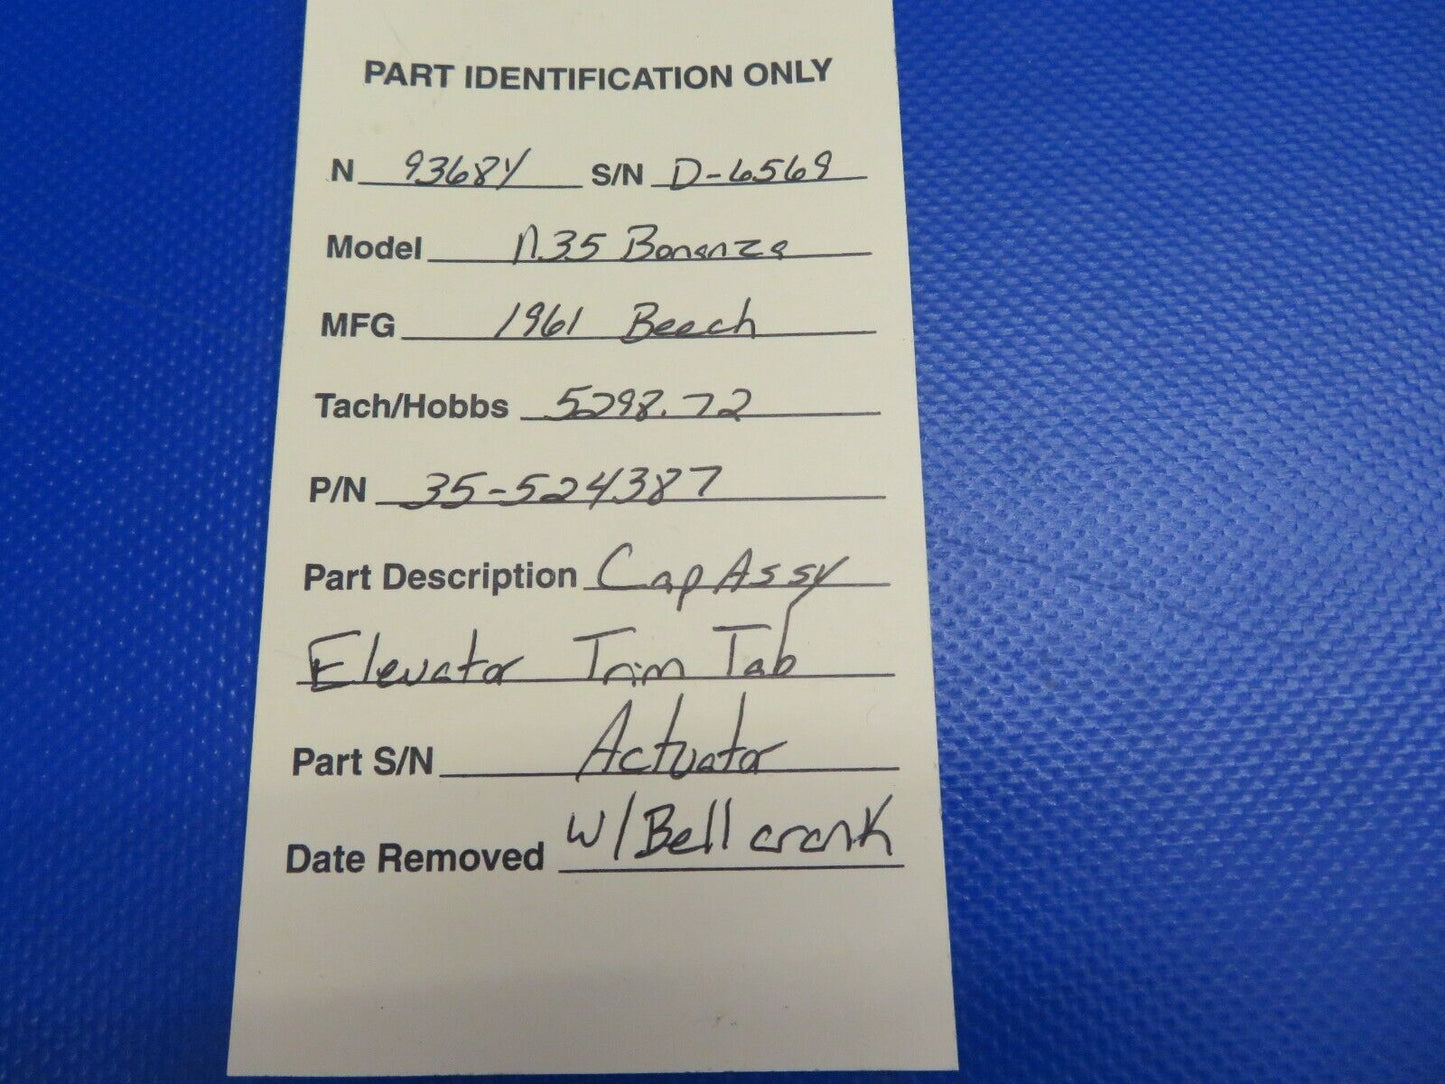 PART IDENTIFICATION ONLY
N 9368Y S/N D-6569
Model N35 Bonanza
MFG 1961 Beech
Tach/Hobbs 5298.72
P/N 35-524387
Part Description Cap Assy
Elevator Trim Tab
Part S/N Actuator
Date Removed W/Bell crank